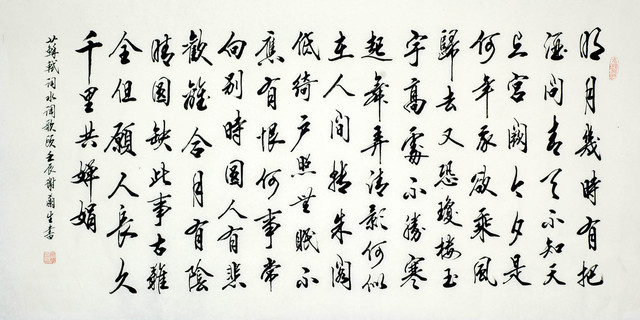 明月幾時有把
酒問青天不知天
上宮闕今夕是
何年我欲乘風
歸去又恐瓊樓玉
宇高處不勝寒
起舞弄清影何似
在人間轉朱閣
低綺戶照無眠不
應有恨何事常
向別時圓人有悲
歡離合月有陰
晴圓缺此事古難
全但願人長久
千里共嬋娟
蘇軾詞水調歌頭壬辰謝生書